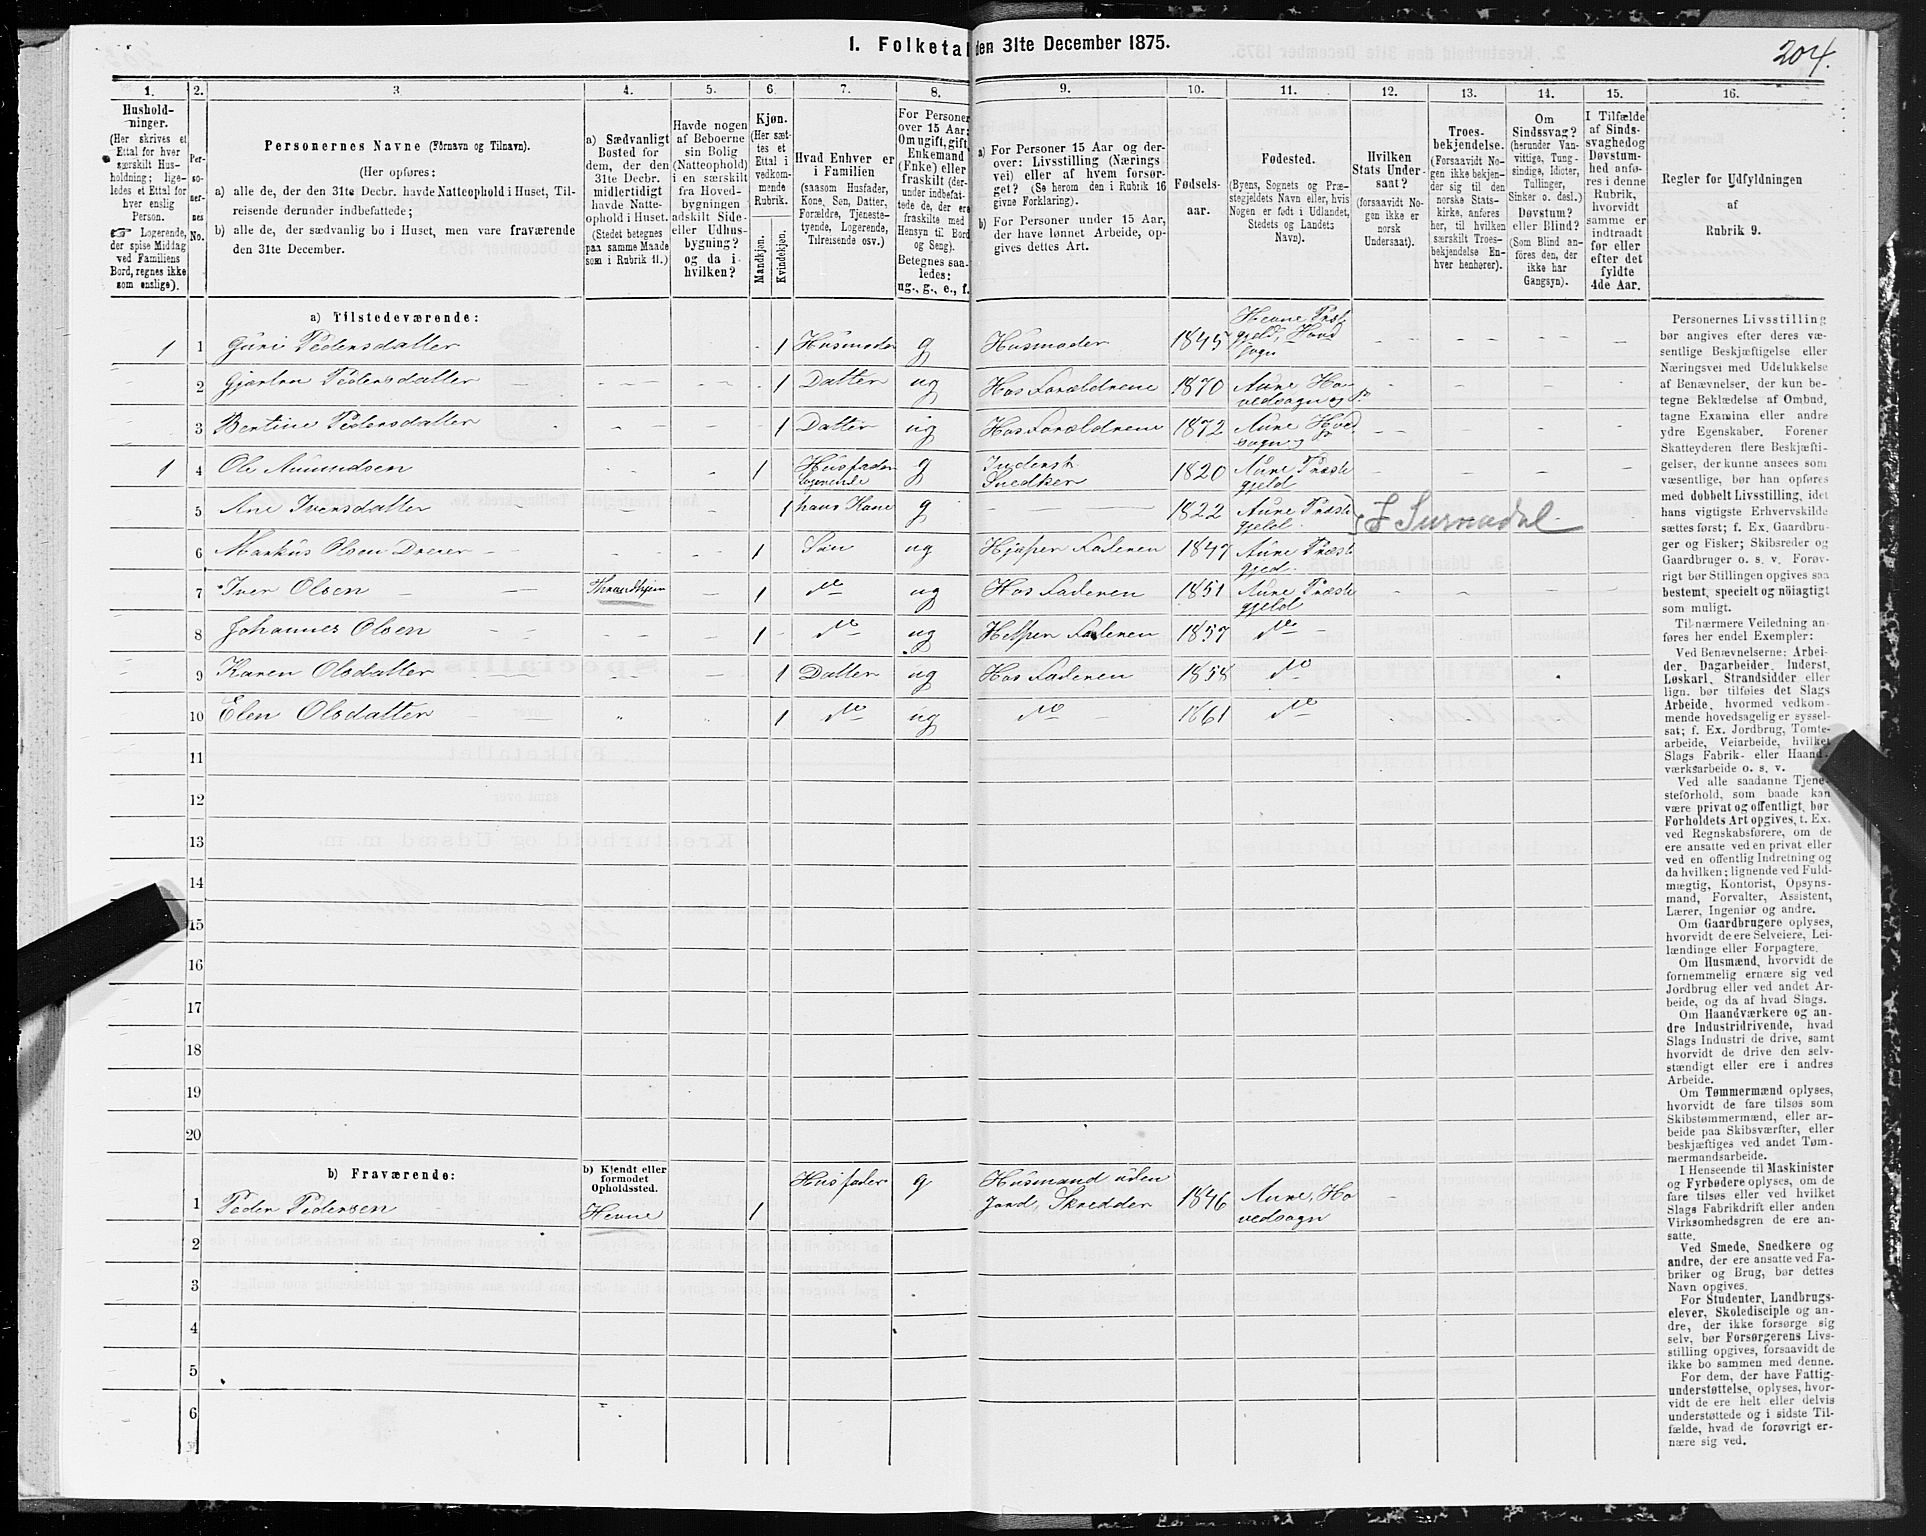 204.
1. Folketal den 31te December 1875.
1. 2. 3 4. 5. 6 7. 8. 9. 10. 11. 12. 13. 14. 15. 16.
Hushold-
ninger.
(Her skrives et
Ettal for hver
særskilt Hus-
holdning; lige-
ledes et Ettal for
hver enslig
Person.
☞ Logerende,
der spise Middag
ved Familiens
Bord, regnes ikke
som enslige).
Per-
so-
ner-
nes
No.
Personernes Navne (Fornavn og Tilnavn).
(Her opføres:
a) alle de, der den 31te Decbr. havde Natteophold i Huset, Til-
reisende derunder indbefattede;
b) alle de, der sædvanlig bo i Huset, men vare fraværende
den 31te December.
a) Sædvanligt
Bosted for
dem, der den
31te Decbr.
midlertidigt
havde Natte-
ophold i Huset.
(Stedet betegnes
paa samme Maade
som i Rubrik 11.)
Havde nogen
af Beboerne
sin Bolig
(Natteophold)
i en særskilt
fra Hoved-
bygningen
adskilt Side-
eller Udhus-
bygning?
og da i
hvilken?
Kjøn.
(Her sæt-
tes et
Ettal i
vedkom-
mende
Rubrik.
Mandkjøn.
Kvindekjøn.
Hvad Enhver er
i Familien
(saasom Husfader,
Kone, Søn, Datter,
Forældre, Tjeneste-
tyende, Logerende,
Tilreisende osv.)
For Personer
over 15 Aar:
Om ugift, gift,
Enkemand
(Enke) eller
fraskilt (der-
under indbefat-
tede de, der ere
fraskilte med
Hensyn til Bord
og Seng).
Betegnes saa-
ledes:
ug., g., e., f.
a) For Personer 15 Aar og der-
over: Livsstilling (Nærings
vei) eller af hvem forsør-
get? (Se herom den i Rubrik 16
givne Forklaring).
b) For Personer under 15 Aar,
der have lønnet Arbeide, op-
gives dettes Art.
Fødsels-
aar.
Fødested.
(Byens, Sognets og Præ-
stegjeldets Navn eller, hvis
Nogen er født i Udlandet,
Stedets og Landets
Navn).
Hvilken
Stats Under-
saat?
(forsaavidt No-
gen ikke er
norsk
Undersaat).
Troes-
bekjendelse.
(Forsaavidt No-
gen ikke bekjen-
der sig til den
norske Stats-
kirke, anføres
her, til hvilken
særskilt Troes-
bekjendelse En-
hver henhører).
Om
Sindssvag?
(herunder Van-
vittige, Tung-
sindige, Idioter,
Tullinger,
Sinker o. desl.)
Døvstum?
eller Blind?
(Som Blind an-
føres den, der
ikke har
Gangsyn).
I Tilfælde
af Sinds-
svaghed og
Døvstum-
hed anfø-
res i denne
Rubrik,
hvorvidt
samme er
indtraadt
før eller
efter det
fyldte
4de Aar.
Regler for Udfyldningen
af
Rubrik 9.
a) Tilstedeværende:
1 1 Guri Pedersdatter 1 Husmoder g Husmoder 1845 Hevne Præst
gjeld, Hovd
sogn
2 Gjertru Pedersdatter 1 Datter ug Hos Forældrene 1870 Aure Ho-
vedsogn og P
3 Bertine Pedersdatter 1 Datter ug Hos Forældrene 1872 Aure Hovd
sogn
1 4 Ole Amundsen 1 Husfader
logerende g Inderst
Snedker 1820 Aure Præste
gjeld
5 Ane Iversdatter 1 hans Kone g 1822 Aure Præste
gjeld } F Surnadal
6 Markus Olsen Dreier 1 Søn ug Hjelper Faderen 1847 Aure Præste
gjed
7 Iver Olsen Throndhjem 1 do ug Hos Faderen 1851 Aure Præste
gjeld
8 Johannes Olsen 1 do ug Helper Faderen 1857 do
9 Karen Olsdatter 1 Datter ug Hos Faderen 1858 do
10 Elen Olsdatter 1 do ug do 1861 do
11
12
13
14
15
16
17
18
19
20
b) Fraværende:
b) Kjendt eller
formodet
Opholdssted.
1 Peder Pedersen Hevne 1 Husfader g Husmand uden
Jord, Skredder 1846 Aure, Ho
vedsogn
2
3
4
5
6
Personernes Livsstilling
bør angives efter deres væ-
sentlige Beskjæftigelse eller
Næringsvei med Udelukkelse
af Benævnelser, der kun be-
tegne Beklædelse af Ombud,
tagne Examina eller andre
ydre Egenskaber. Forener
Skatteyderen flere Beskjæfti-
gelser, der kunne ansees som
væsentlige, bør han opføres
med dobbelt Livsstilling, idet
hans vigtigste Erhvervskilde
sættes først; f. Ex. Gaardbru-
ger og Fisker; Skibsreder og
Gaardbruger o. s. v. Forøv-
rigt bør Stillingen opgives saa
bestemt, specielt og nöiagtigt
som muligt.
Til nærmere Veiledning an-
føres her endel Exempler:
Ved Benævnelserne: Arbei-
der, Dagarbeider, Inderst,
Løskarl, Strandsidder eller
lign. bør tilføies det Slags
Arbeide, hvormed vedkom-
mende hovedsagelig er syssel-
sat; f. Ex. Jordbrug, Tomte-
arbeide, Veiarbeide, hvilket
Slags Fabrik- eller Haand-
værksarbeide o. s. v.
Ved alle saadanne Tjene-
steforhold, som baade kan
være privat og offentligt, bør
Forholdets Art opgives, t. Ex.
ved Regnskabsførere, om de
ere ansatte ved en privat eller
ved en offentlig Indretning og
da hvilken; lignende ved Fuld-
mægtig, Kontorist, Opsyns-
mand, Forvalter, Assistent,
Lærer, Ingeniør og andre.
Om Gaardbrugere oplyses,
hvorvidt de ere Selveiere, Lei-
lændinge eller Forpagtere.
Om Husmænd, hvorvidt de
fornemmelig ernære sig ved
Jordbrug eller ved andet Ar-
beide, og da af hvad Slags.
Om Haandværkere og an-
dre Industridrivende, hvad
Slags Industri de drive, samt
hvorvidt de drive den selv-
stændigt eller ere i andres
Arbeide.
Om Tømmermænd oplyses,
hvorvidt de fare tilsøs som
Skibstømmermænd, eller ar-
beide paa Skibsværfter, eller
beskjæftiges ved andet Tøm-
mermandsarbeide.
I Henseende til Maskinister
og Fyrbødere oplyses, om de
fare tilsøs eller ved hvilket
Slags Fabrikdrift eller anden
Virksomhedsgren de ere an-
satte.
Ved Smede, Snedkere og
andre, der ere ansatte ved Fa-
briker og Brug, bør dettes
Navn opgives.
For Studenter, Landbrugs-
elever, Skoledisciple og an-
dre, der ikke forsørge sig
selv, bør Forsørgerens Livs-
stilling opgives, forsaavidt de
ikke bo sammen med denne.
For dem, der have Fattig-
understøttelse, oplyses, hvor-
vidt de ere helt eller delvis
understøttede og i sidste Til-
fælde, hvad de forøvrigt er-
nære sig ved.